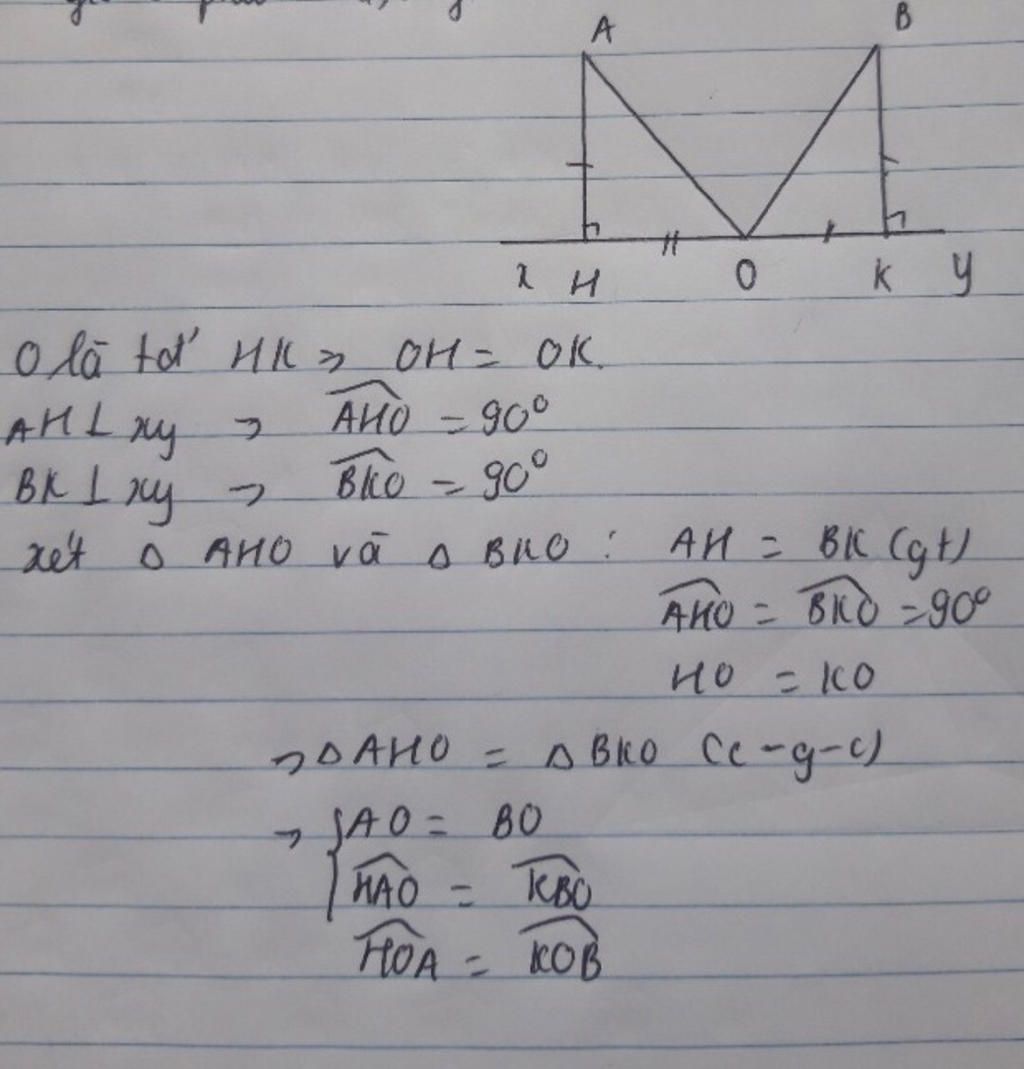 A B
x H O K y
O là tđ HK => OH = OK.
AH ⊥ xy → \widehat{AHO} = 90°
BK ⊥ xy → \widehat{BKO} = 90°
xét Δ AHO và Δ BKO : AH = BK (gt)
\widehat{AHO} = \widehat{BKO} = 90°
HO = KO
→ Δ AHO = Δ BKO (c-g-c)
→ { AO = BO
\widehat{HAO} = \widehat{KBO}
\widehat{HOA} = \widehat{KOB}